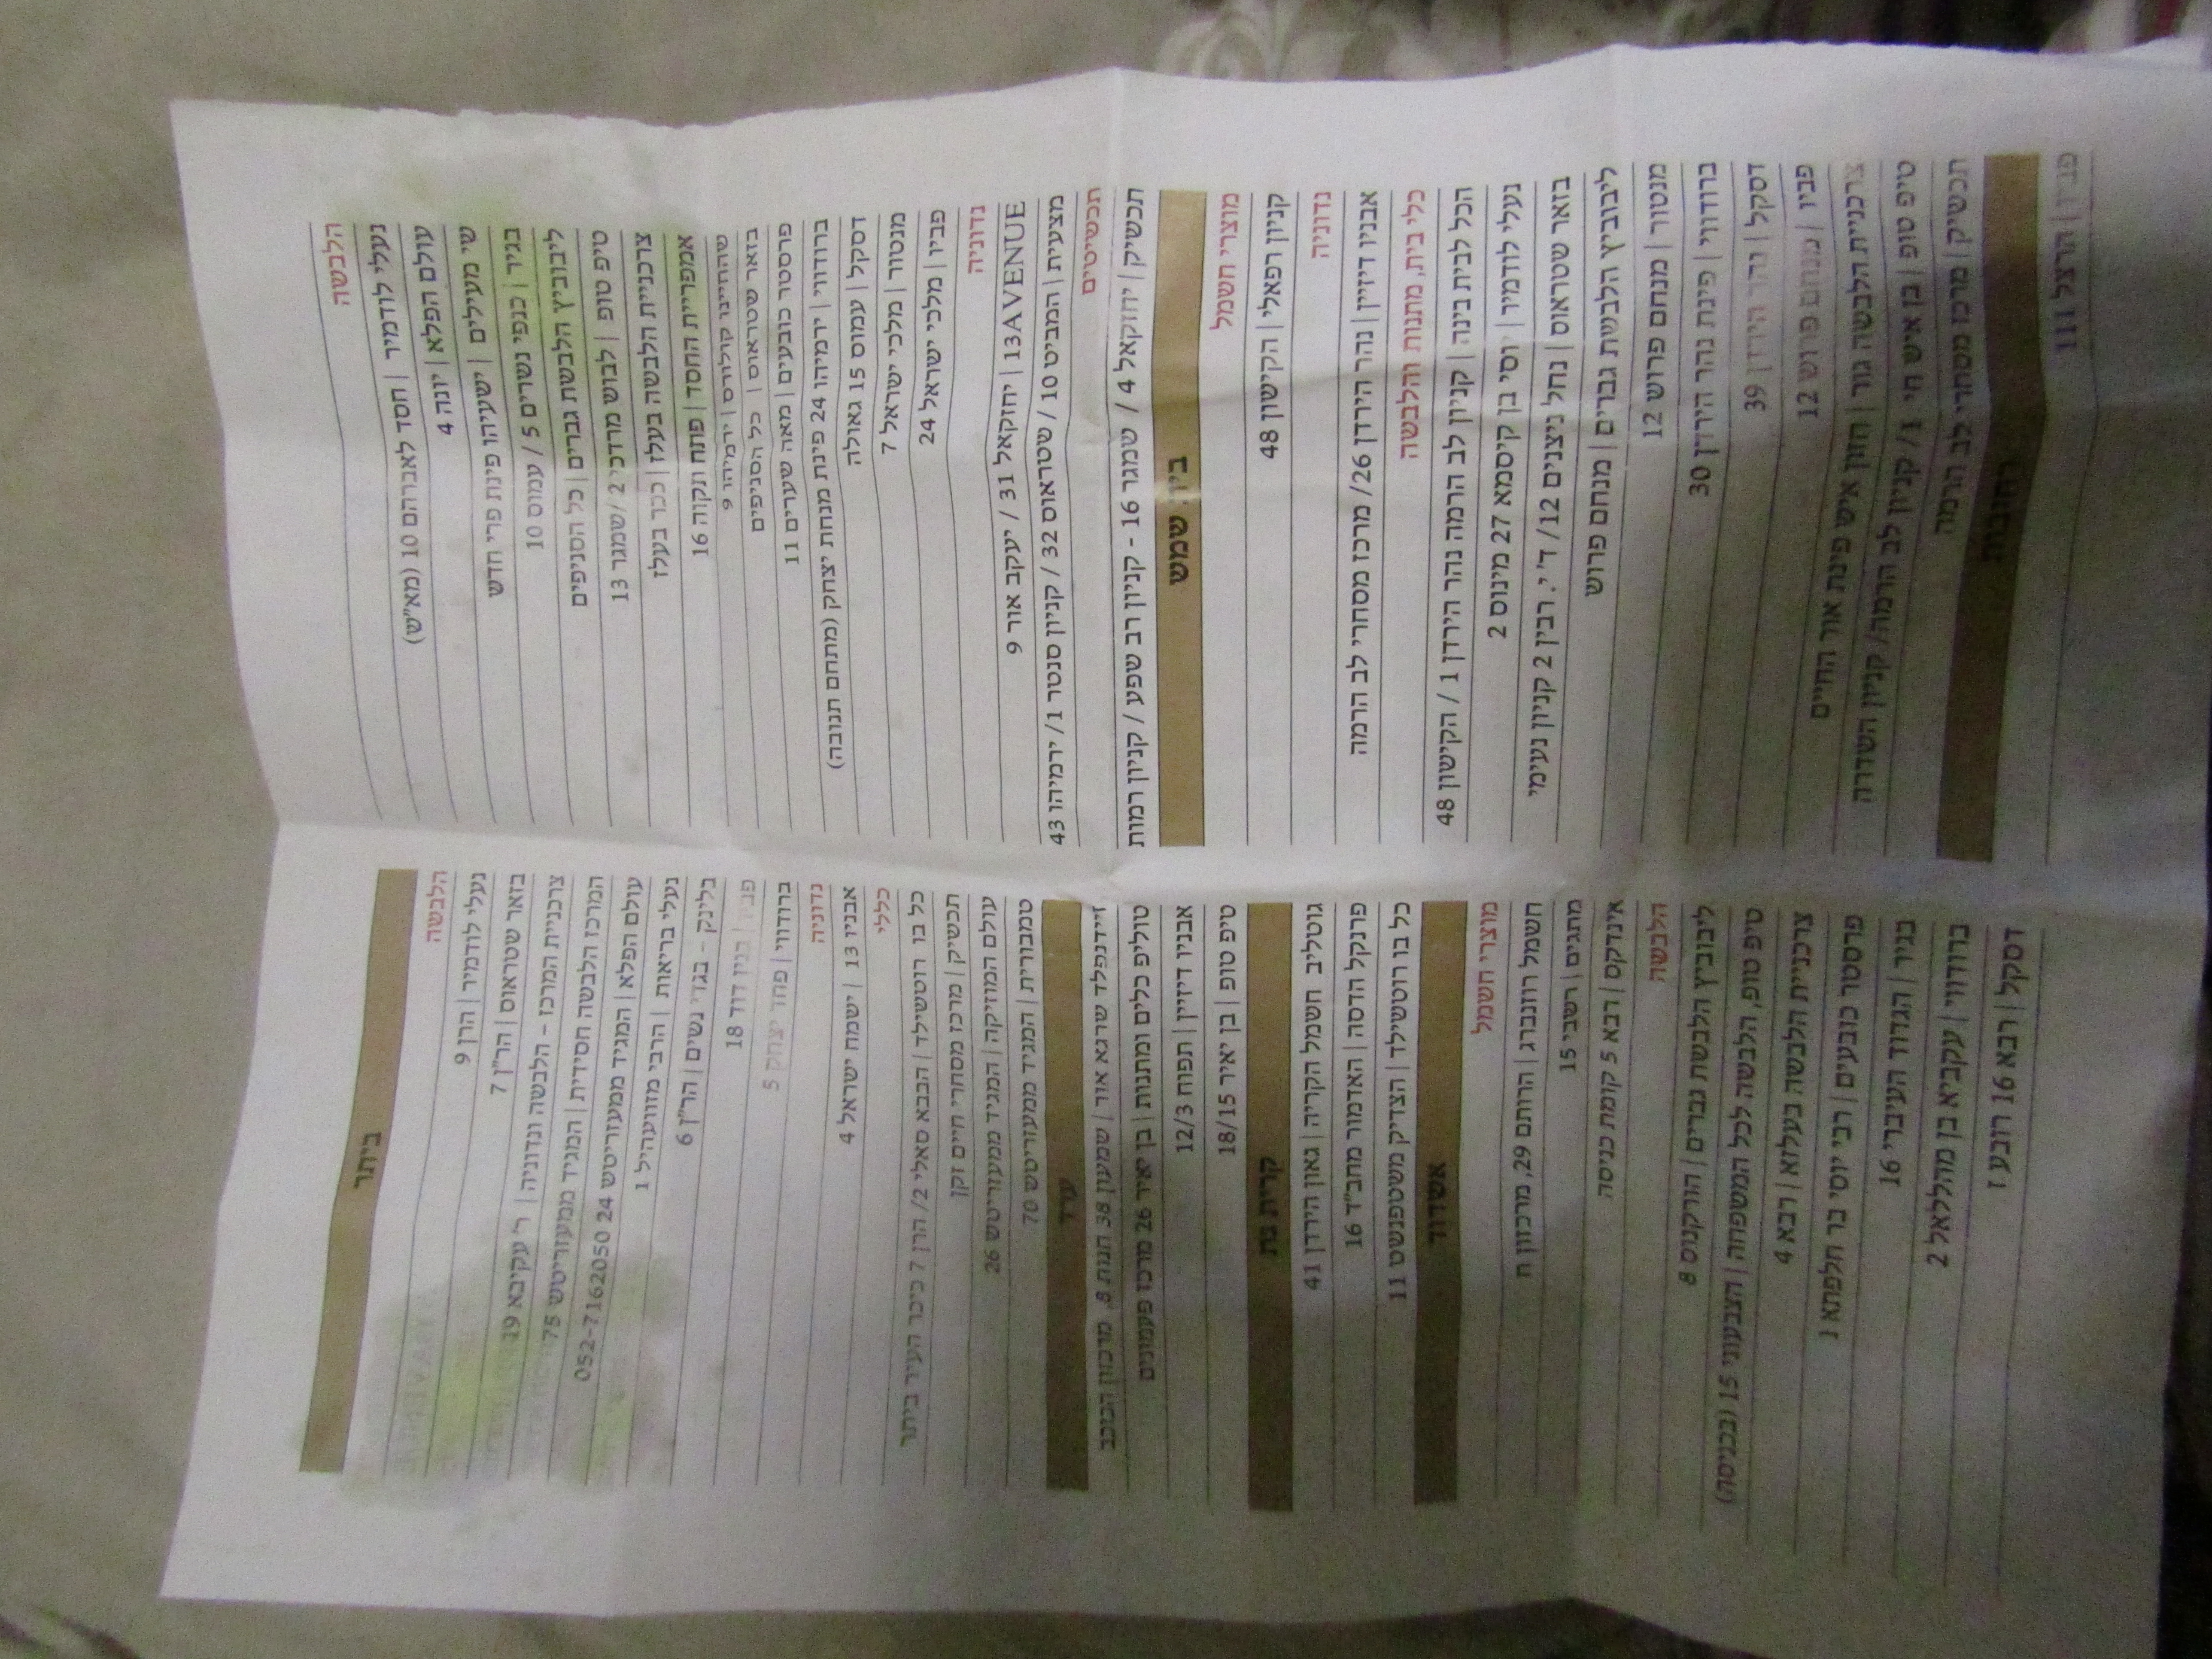 הלבשה
נעלי לודמיר | חסד לאברהם 10 (מא"ש)
עולם הפלא | יונה 4
שי מעילים | ישעיהו פינת פרי חדש
בגיר | כנפי נשרים 5 / עמוס 10
ליבוביץ הלבשת גברים | כל הסניפים
טיפ טופ | לבוש מרדכי 2 / שמגר 13
צרכניית הלבשה בעלז | ככר בעלז
אמפריית החסד | פתח תקווה 16
שהחיינו קולורס | ירמיהו 9
בזאר שטראוס | כל הסניפים
פרסטר כובעים | מאה שערים 11
ברודווי | ירמיהו 24 פינת מנחת יצחק (מתחם תנובה)
דסקל | עמוס 15 גאולה
מנטור | מלכי ישראל 7
פביו | מלכי ישראל 24
נדוניה
13AVENUE | יחזקאל 31 / יעקב אור 9
מצעית | המביט 10 / שטראוס 32 / קניון סנטר 1/ ירמיהו 43
תכשיטים
תכשיק | יחזקאל 4 / שמגר 16 - קניון רב שפע / קניון רמות
בית שמש
מוצרי חשמל
קניון רפאלי | הקישון 48
נדוניה
אבניו דיזיין | נהר הירדן 26/ מרכז מסחרי לב הרמה
כלי בית, מתנות והלבשה
הכל לבית בינה | קניון לב הרמה נהר הירדן 1 / הקישון 48
נעלי לודמיר | יוסי בן קיסמא 27 מינוס 2
בזאר שטראוס | נחל ניצנים 12/ ד"י. רבין 2 קניון נעימי
ליבוביץ הלבשת גברים | מנחם פרוש
מנטור | מנחם פרוש 12
ברודווי | פינת נהר הירדן 30
דסקל | נהר הירדן 39
פביו | מנחם פרוש 12
צרכניית הלבשה גור | חזון איש פינת אור החיים
טיפ טופ | בן איש חי 1 / קניון לב הרמה/ קניון השדרה
תכשיק | מרכז מסחרי לב הרמה
נתניה
פביו | הרצל 111
ביתר
הלבשה
נעלי לודמיר | הרן 9
בזאר שטראוס | הר"ן 7
צרכניית המרכז - הלבשה ונדוניה | ר עקיבא 19
המרכז הלבשה חסידית | המגיד ממעזריטש 75
עולם הפלא | המגיד ממעזריטש 24 052-7162050
נעלי בריאות | הרבי מזוועהיל 1
בלינק - בגדי נשים | הר"ן 6
פביו | כנין דוד 18
ברודווי | פחד יצחק 5
נדוניה
אבניו 13 | ישמח ישראל 4
כללי
כל בו רוטשילד | הבבא סאלי 2/ הרן 7 כיכר העיר ביתר
תכשיק | מרכז מסחרי חיים זקן
עולם המוזיקה | המגיד ממעזריטש 26
סמבורית | המגיד ממעזריטש 70
ערד
זיידנפלד שרגא אור | שמעון 38 חנות 8, מרכזון הכוכב
טוליפ כלים ומתנות | בן יאיר 26 מרכז פעמונים
אבניו דיזיין | תפוח 12/3
טיפ טופ | בן יאיר 18/15
קרית גת
גוטליב חשמל הקריה | גאון הירדן 41
פרנקל הדסה | האדמור מחב"ד 16
כל בו רוטשילד | הצדיק משטפנשט 11
אשדוד
מוצרי חשמל
חשמל רוזנברג | הרותם 29, מרכזון ח
מתגים | רשבי 15
אינדקס | רבא 5 קומת כניסה
הלבשה
ליבוביץ הלבשת גברים | הורקנוס 8
טיפ טופ, הלבשה לכל המשפחה | הצבעוני 15 (בכניסה)
צרכניית הלבשה בעלזא | רבא 4
פרסטר כובעים | רבי יוסי בר חלפתא 1
בגיר | הגדוד העיברי 16
ברודווי | עקביא בן מהללאל 2
דסקל | רבא 16 רובע ז